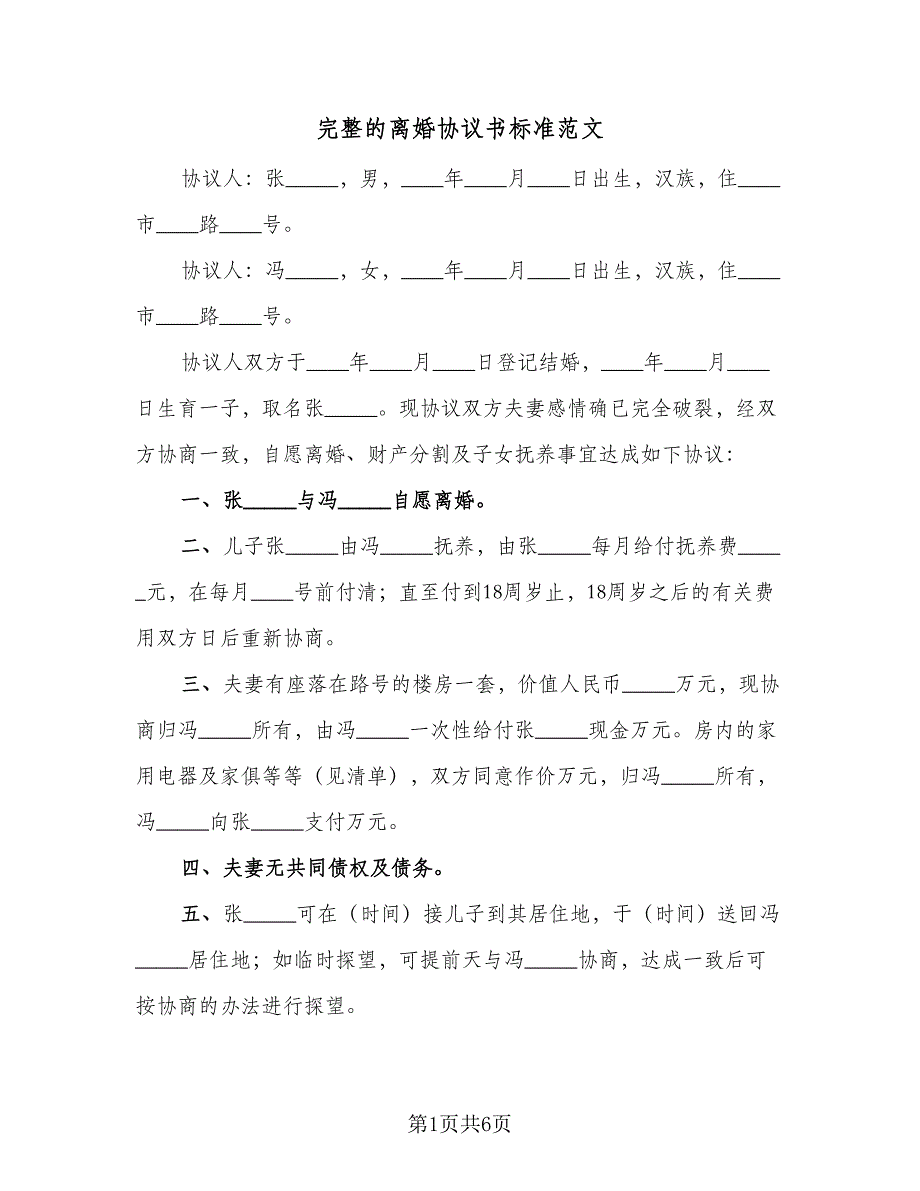 完整的离婚协议书标准范文
协议人：张_____，男，____年____月____日出生，汉族，住____
市____路____号。
协议人：冯_____，女，____年____月____日出生，汉族，住____
市____路____号。
协议人双方于____年____月____日登记结婚，____年____月____
日生育一子，取名张_____。现协议双方夫妻感情确已完全破裂，经双
方协商一致，自愿离婚、财产分割及子女抚养事宜达成如下协议：
一、张_____与冯_____自愿离婚。
二、儿子张_____由冯_____抚养，由张_____每月给付抚养费____
_元，在每月____号前付清；直至付到18周岁止，18周岁之后的有关费
用双方日后重新协商。
三、夫妻有座落在路号的楼房一套，价值人民币_____万元，现协
商归冯_____所有，由冯_____一次性给付张_____现金万元。房内的家
用电器及家俱等等（见清单），双方同意作价万元，归冯_____所有，
冯_____向张_____支付万元。
四、夫妻无共同债权及债务。
五、张_____可在（时间）接儿子到其居住地，于（时间）送回冯
_____居住地；如临时探望，可提前天与冯_____协商，达成一致后可
按协商的办法进行探望。
第1页共6页